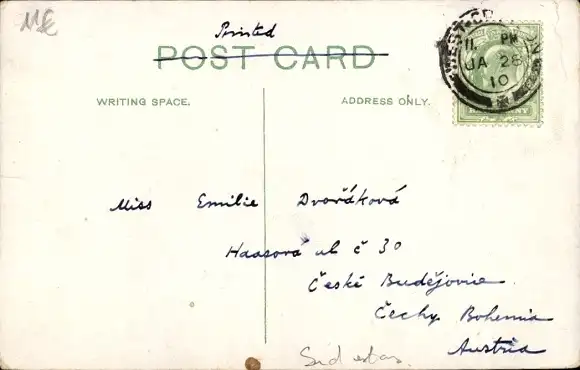 Printed
POST CARD
WRITING SPACE.
ADDRESS ONLY.
11 PM
JA 28
10
Miss Emilie Dvořáková
Haasová ul č 30
České Budějovice
Čechy Bohemia
Austria